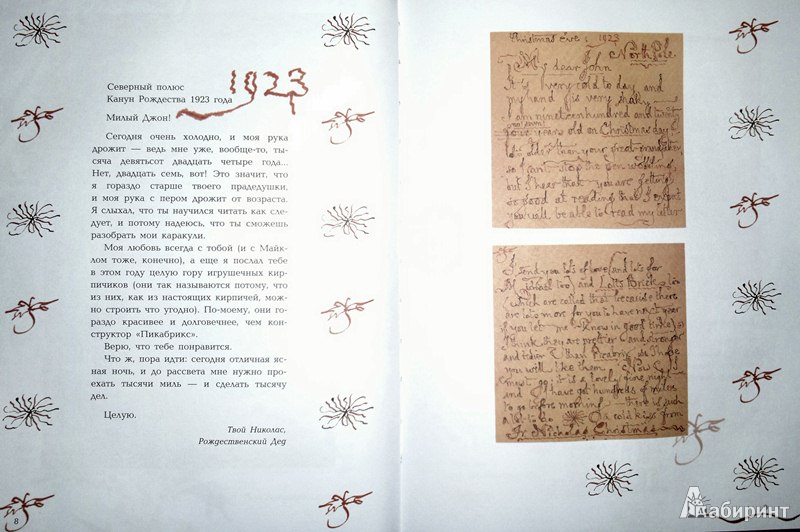 1923
Северный полюс
Канун Рождества 1923 года
Милый Джон!
Сегодня очень холодно, и моя рука
дрожит — ведь мне уже, вообще-то, ты-
сяча девятьсот двадцать четыре года...
Нет, двадцать семь, вот! Это значит, что
я гораздо старше твоего прадедушки,
и моя рука с пером дрожит от возраста.
Я слыхал, что ты научился читать как сле-
дует, и потому надеюсь, что ты сможешь
разобрать мои каракули.
Моя любовь всегда с тобой (и с Майк-
лом тоже, конечно), а еще я послал тебе
в этом году целую гору игрушечных кир-
пичиков (они так называются потому, что
из них, как из настоящих кирпичей, мож-
но строить что угодно). По-моему, они го-
раздо красивее и долговечнее, чем кон-
структор «Пикабрикс».
Верю, что тебе понравится.
Что ж, пора идти: сегодня отличная яс-
ная ночь, и до рассвета мне нужно про-
ехать тысячи миль — и сделать тысячу
дел.
Целую.
Твой Николас,
Рождественский Дед
8
Christmas Eve : 1923
North Pole
My dear John
It is very cold today and
my hand is very shaky
I am nineteen hundred and twenty
four years old on Christmas day
lots older than your great-grandfather
so I can't stop the pen wobbling,
but I hear that you are getting
so good at reading that I expect
you will be able to read my letter
I send you lots of love and lots for
Michael too and Lotts Bricks too
which are called that because there
are lots more for you to have next year
if you let me know in good time
I think they are prettier and stronger
and tidier than Picabrix so I hope
you will like them Now I
must go it is a lovely fine night
and I have got hundreds of miles
to go before morning there is such
a lot to do A cold kiss from
Fr. Nicholas Christmas
Лабиринт